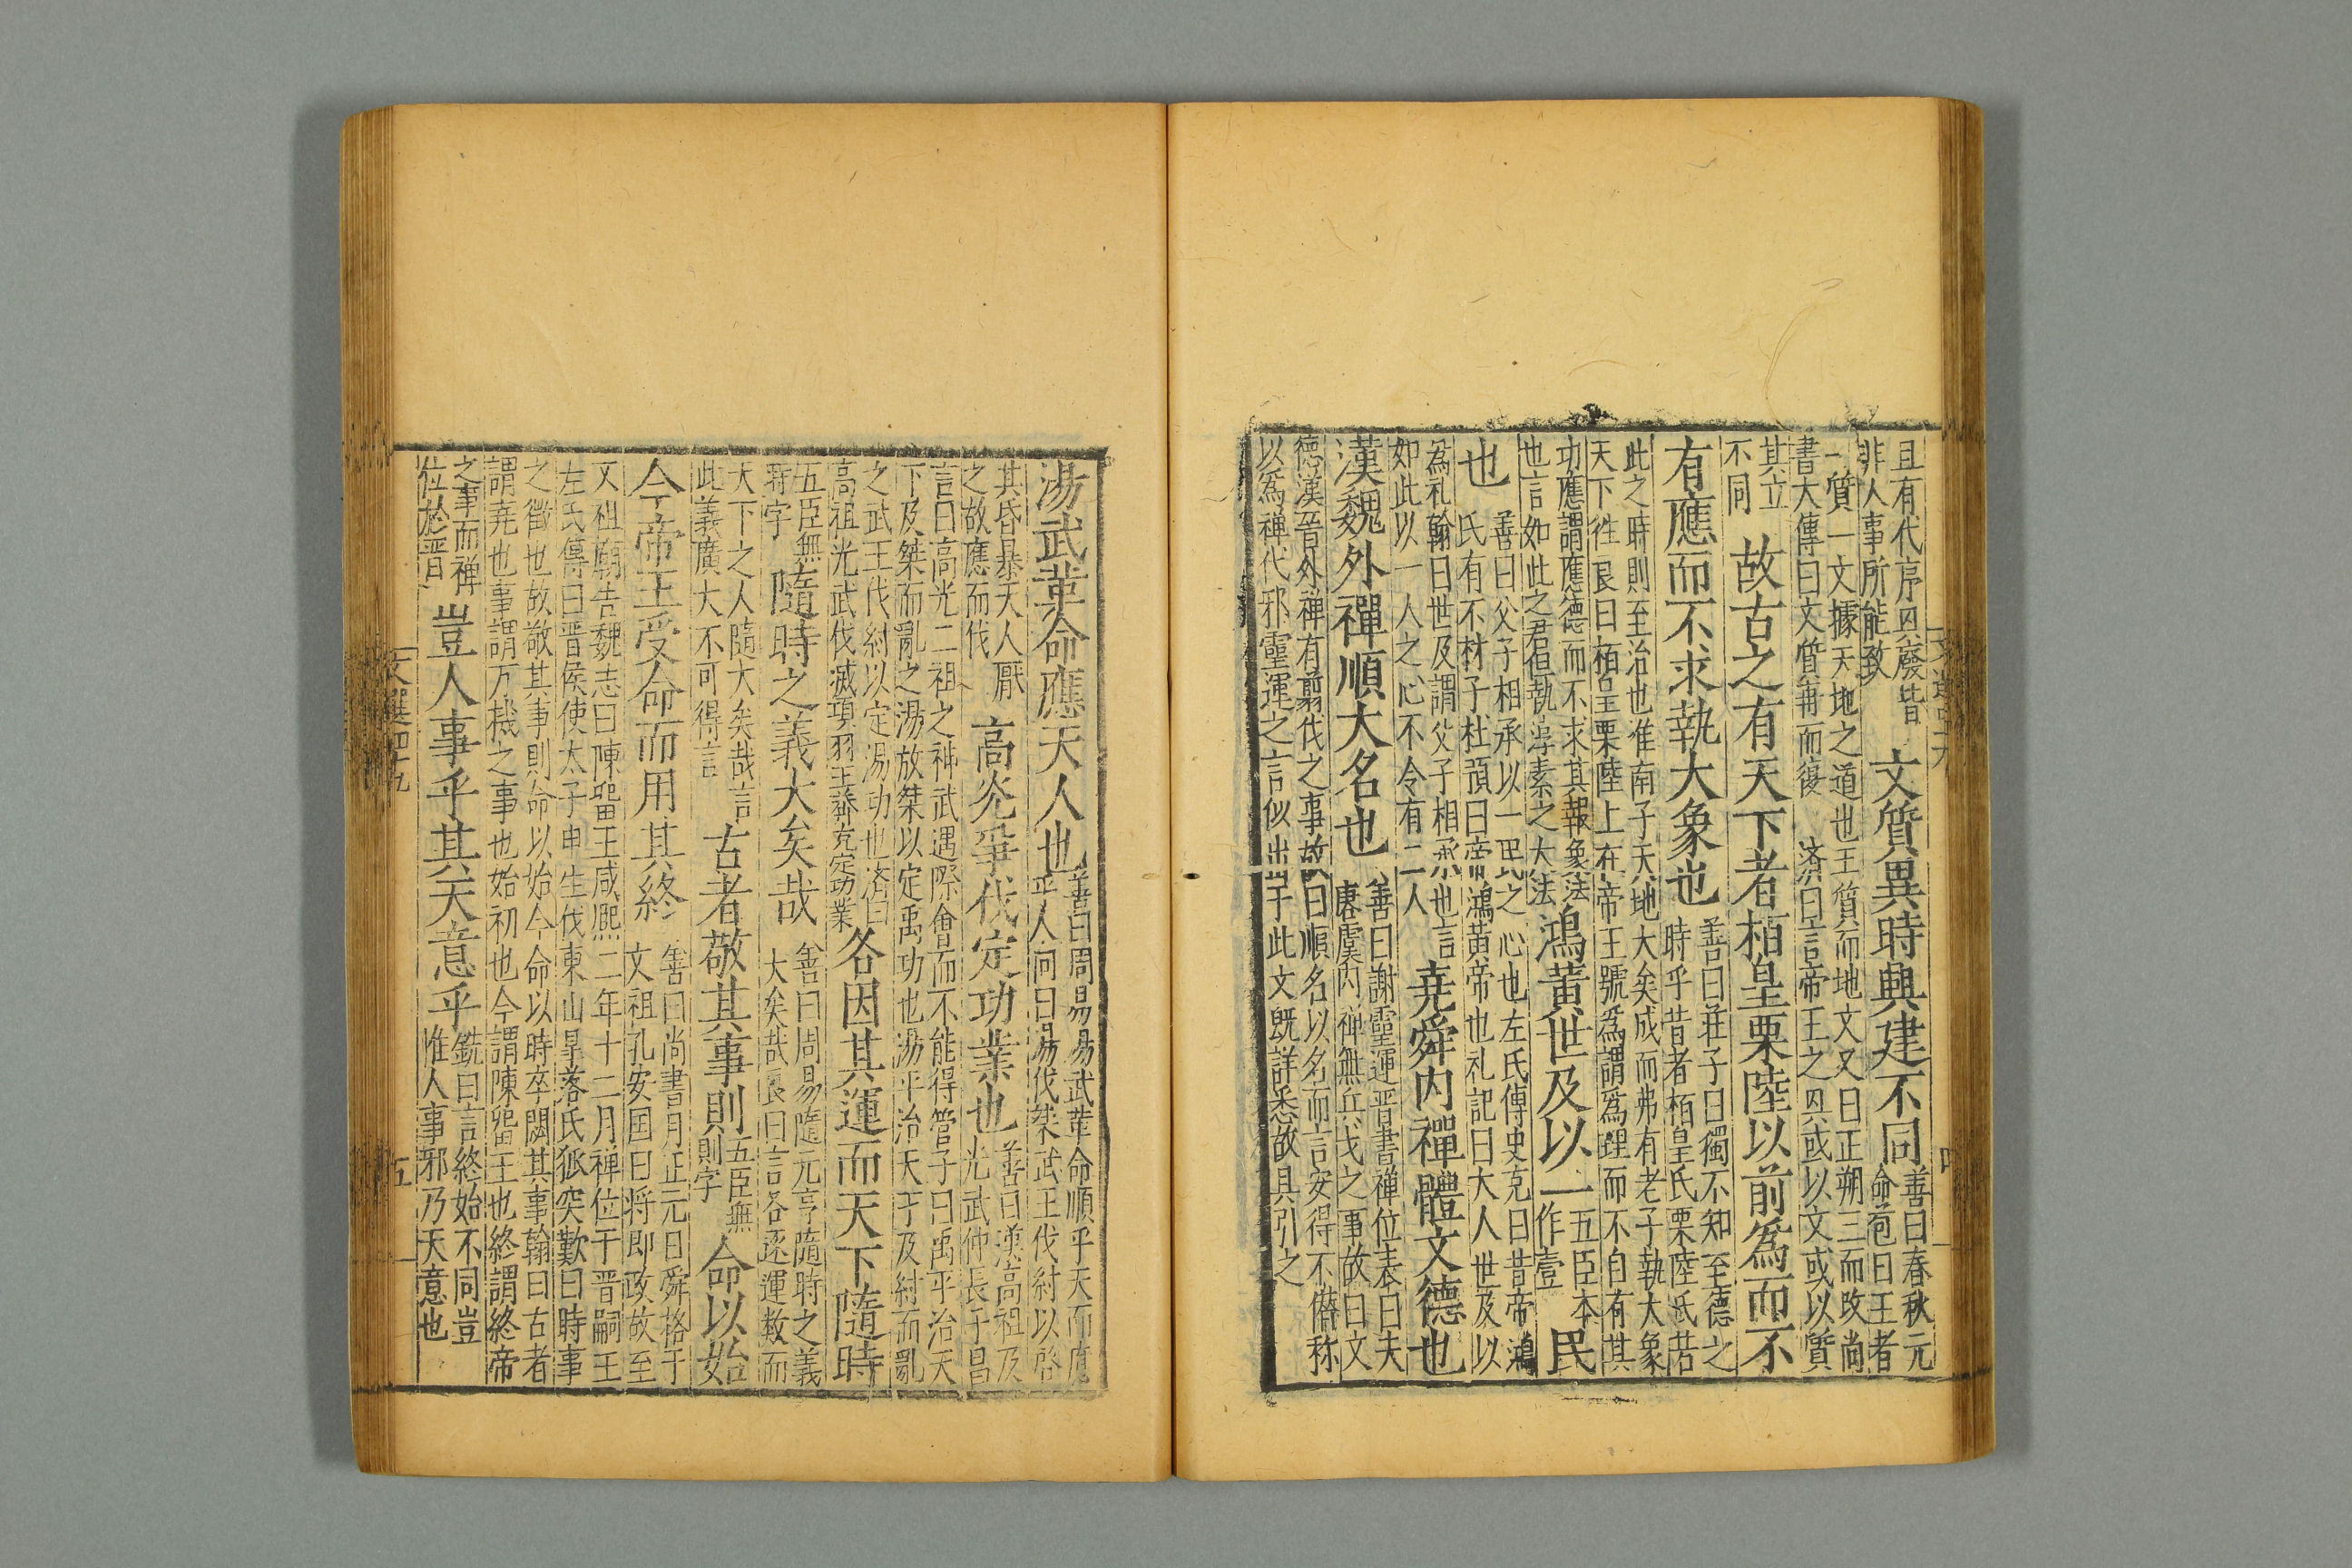 且有代序㒷廢皆
非人事所能致
文質異時興建不同
善曰春秋元
命苞曰王者
一質一文據天地之道也王質而地文又曰正朔三而改尚
書大傳曰文質再而復
濟曰言帝王之㒷或以文或以質
其立
不同
故古之有天下者栢皇栗陸以前爲而不
有應而不求執大象也
善曰莊子曰獨不知至德之
時乎昔者栢皇氏栗陸氏若
此之時則至治也淮南子天地大矣成而弗有老子執大象
天下徃良曰栢皇栗陸上古帝王號爲謂爲理而不自有其
功應謂應德而不求其報象法
也言如此之君但執淳素之大法
鴻黃世及以一
五臣本
作壹
民
也
善曰父子相承以一民之心也左氏傳史克曰昔帝鴻
氏有不材子杜預曰帝鴻黃帝也礼記曰大人世及以
爲礼翰曰世及謂父子相承也言
如此以一人之心不令有二人
堯舜内禪體文德也
漢魏外禪順大名也
善曰謝靈運晋書禅位表曰夫
唐虞内禅無兵戈之事故曰文
德漢晉外禅有翦伐之事故曰順名以名而言安得不僣称
以爲禅代邪靈運之言似出于此文旣詳悉故具引之
湯武革命應天人也
善曰周易湯武革命順乎天而應
乎人何曰湯伐桀武王伐紂以啓
其昏暴天人厭
之故應而伐
高光爭伐定功業也
善曰漢高祖及
光武仲長子昌
言曰高光二祖之神武遇際會而不能得管子曰禹平治天
下及桀而亂之湯放桀以定禹功也湯平治天下及紂而亂
之武王伐紂以定湯功也濟曰
高祖光武伐滅項羽王莽克定功業
各因其運而天下隨時
五臣無
時字
隨時之義大矣哉
善曰周易隨元亨隨時之義
大矣哉良曰言各逐運数而
天下之人隨大矣哉言
此義廣大不可得言
古者敬其事則
五臣無
則字
命以始
今帝王受命而用其終
善曰尚書月正元日舜格于
文祖孔安囯曰将即政故至
文祖廟告魏志曰陳留王咸熙二年十二月禅位于晋嗣王
左氏傳曰晋侯使太子申生伐東山皐落氏狐突歎曰時事
之徵也故敬其事則命以始今命以時卒閟其事翰曰古者
謂堯也事謂万機之事也始初也今謂陳留王也終謂終帝
之事而禅
位於晋
豈人事乎其天意乎
銑曰言終始不同豈
惟人事邪乃天意也
五